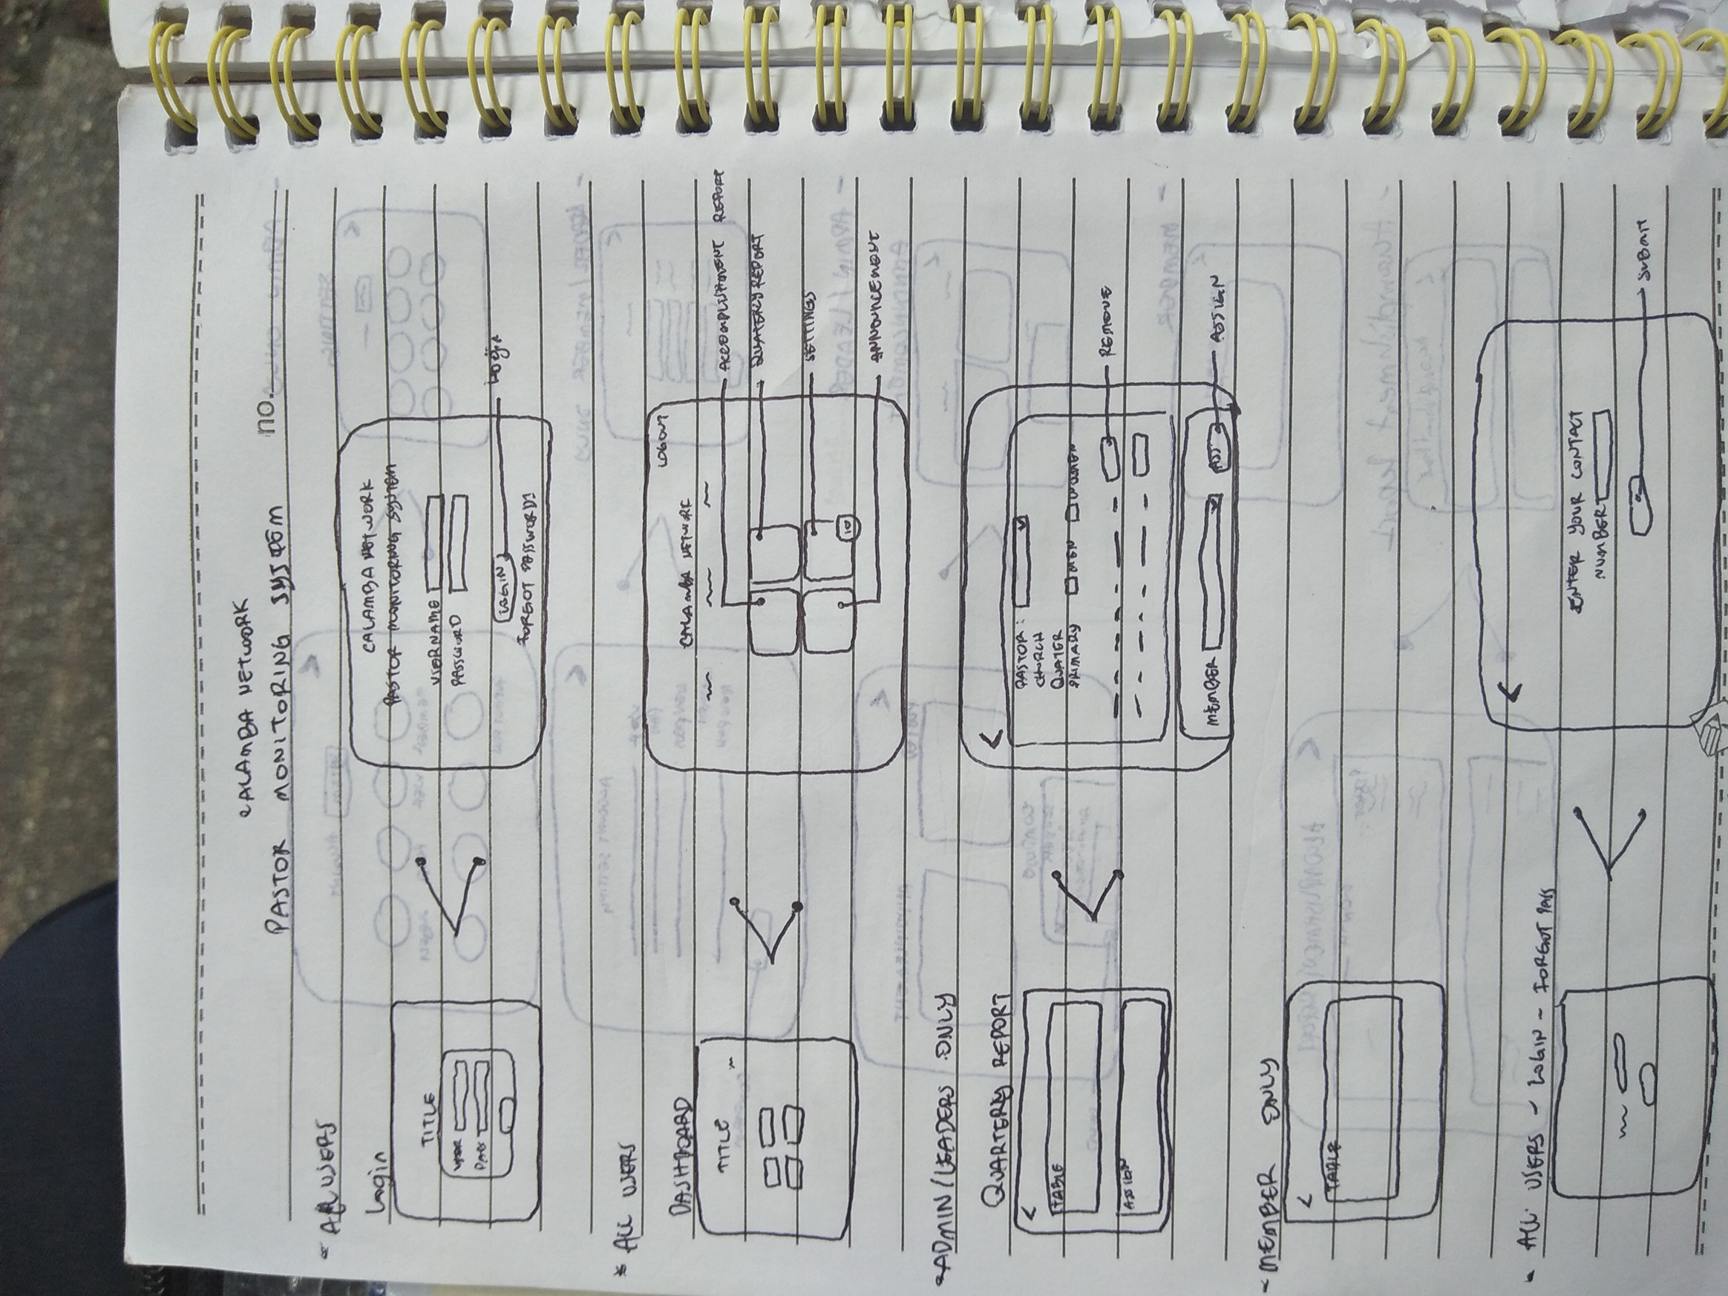 CALAMBA NETWORK
PASTOR MONITORING SYSTEM
no.
- ALL USERS
Login
TITLE
USER
PASS
CALAMBA NETWORK
PASTOR MONITORING SYSTEM
USERNAME
PASSWORD
LOGIN
LOGIN
FORGOT PASSWORD?
* ALL USERS
DASHBOARD
TITLE
LOGOUT
CALAMBA NETWORK
ACCOMPLISHMENT REPORT
QUATERLY REPORT
SETTINGS
10
ANNOUNCEMENT
- ADMIN/LEADERS ONLY
QUARTERLY REPORT
<
TABLE
ASSIGN
<
PASTOR :
CHURCH
QUATER
PRIMARY MEN WOMEN
REMOVE
MEMBER ASS ASSIGN
- MEMBER ONLY
<
TABLE
- ALL USERS - LOGIN - FORGOT PASS
<
ENTER YOUR CONTACT
NUMBER
SUBMIT